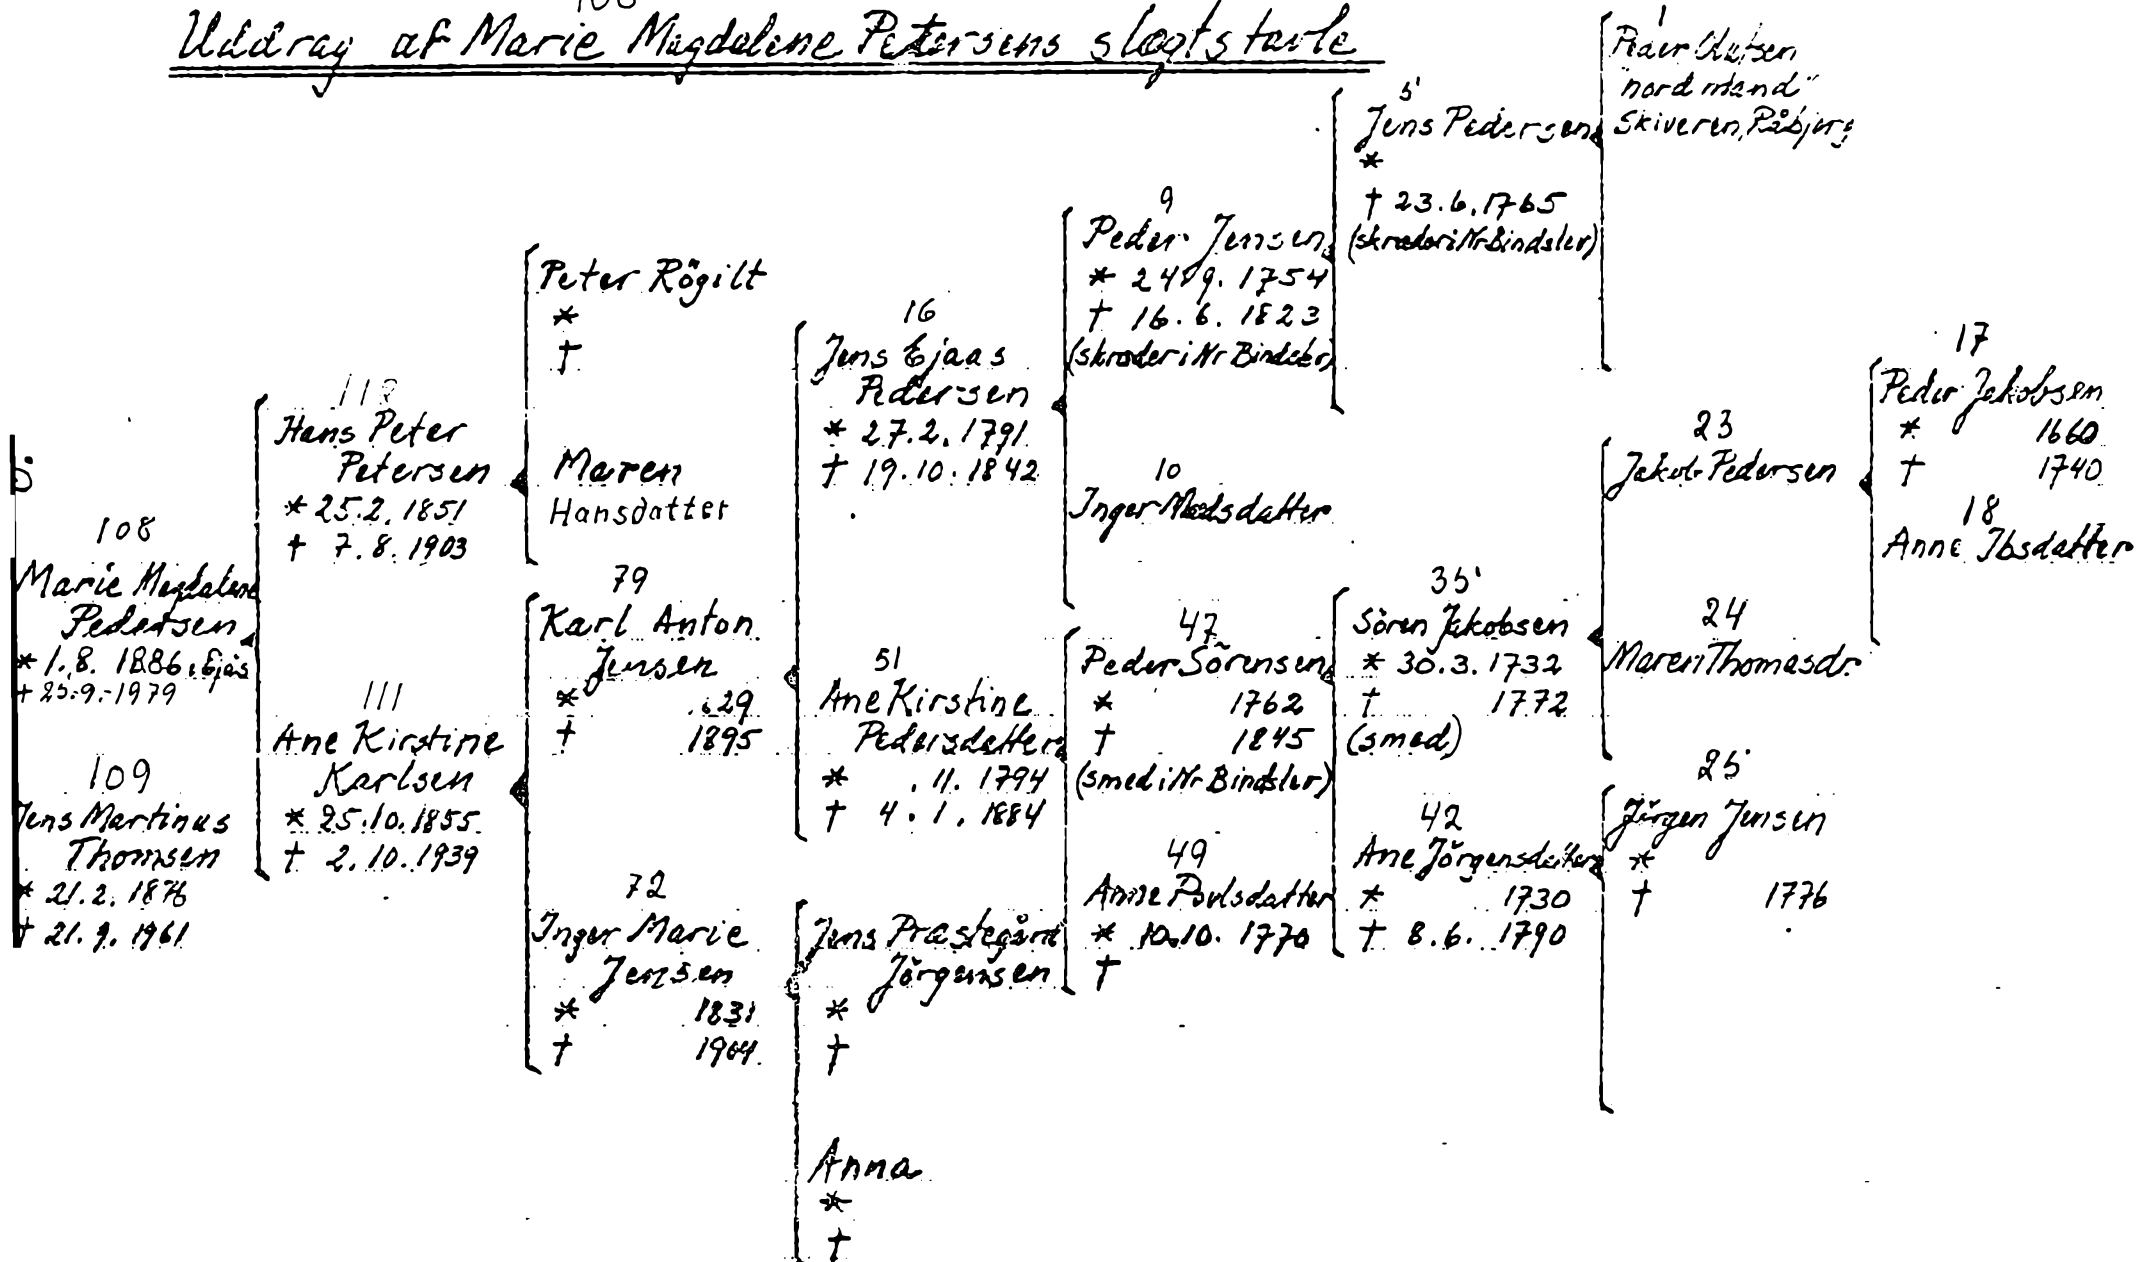 108
Uddrag af Marie Magdalene Petersens slægtstavle
108
Marie Magdalene
Pedersen
* 1.8. 1886. Ejås
† 25.9.-1979
109
Jens Martinus
Thomsen
* 21.2. 1876
† 21.9. 1961
Hans Peter
Petersen
* 25.2. 1851
† 7.8. 1903
111
Ane Kirstine
Karlsen
* 25.10.1855
† 2.10.1939
Peter Rögilt
*
†
Maren
Hansdatter
79
Karl Anton
Jensen
* 29
† 1895
72
Inger Marie
Jensen
* 1831
† 1904
16
Jens Ejaas
Pedersen
* 27.2. 1791
† 19.10.1842
51
Ane Kirstine
Pedersdatter
* .11. 1794
† 4.1. 1884
Jens Præstegård
Jörgensen
*
†
Anna
*
†
9
Peder Jensen
* 24.9. 1754
† 16.6. 1823
(skræder i Nr Bindslev)
10
Inger Madsdatter
47
Peder Sörensen
* 1762
† 1845
(smed i Nr Bindslev)
49
Anne Povlsdatter
* 10.10. 1770
†
5
Jens Pedersen
*
† 23.6.1765
(skræder i Nr Bindslev)
35
Sören Jakobsen
* 30.3. 1732
† 1772
(smed)
42
Ane Jörgensdatter
* 1730
† 8.6. 1790
1
Peder
"nordmand"
Skiveren, Råbjerg
23
Jakob Pedersen
24
Maren Thomasdr.
25
Jörgen Jensen
*
† 1776
17
Peder Jakobsen
* 1660
† 1740
18
Anne Ibsdatter